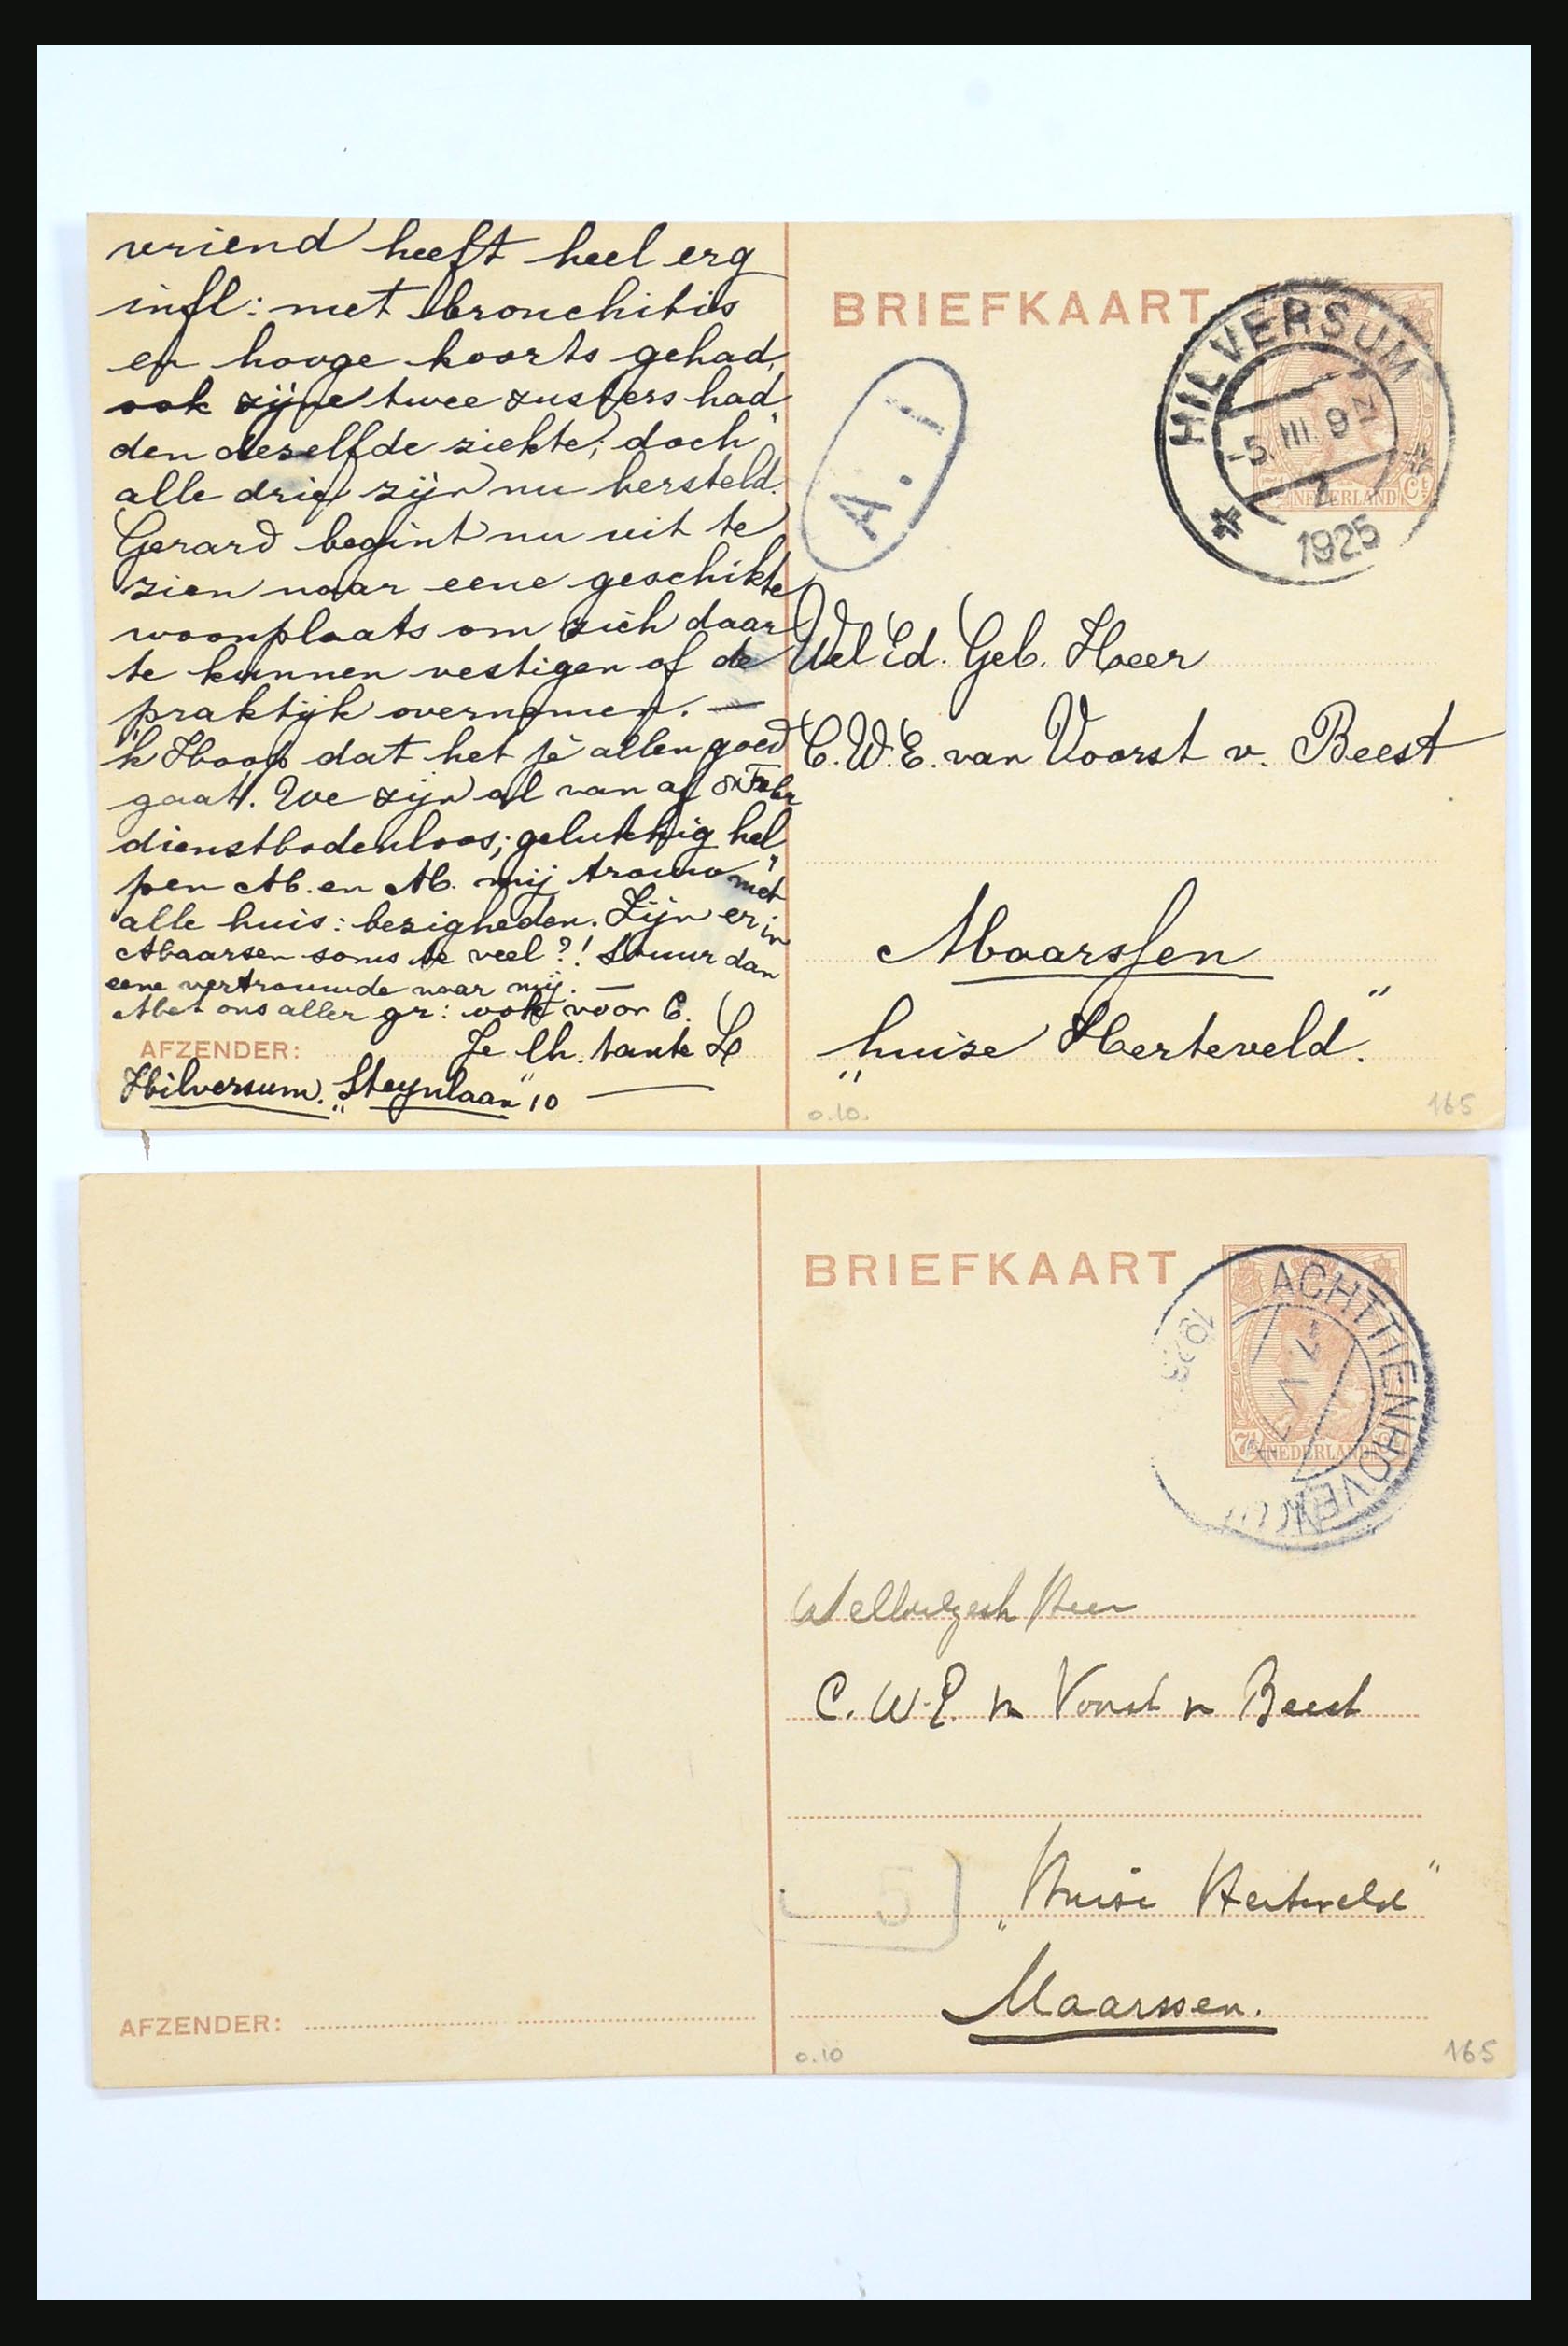 vriend heeft heel erg
infl: met bronchitis
en hooge koorts gehad,
ook zijne twee zusters had
den dezelfde ziekte; doch
alle drie zijn nu hersteld.
Gerard begint nu uit te
zien naar eene geschikte
woonplaats om zich daar
te kunnen vestigen of de
praktijk overnemen. —
'k Hoop dat het je allen goed
gaat. We zijn al van af 8 Febr
dienstbodenloos; gelukkig hel
pen M. en M. mij trouw met
alle huis: bezigheden. Zijn er in
Maarsen soms te veel?! Stuur dan
eene vertrouwde naar mij. —
Met ons aller gr: ook voor C.
AFZENDER: Je lh. tante L
Hilversum. „Steynlaan" 10
BRIEFKAART
HILVERSUM
-5.III 9 N
1
1925
7½ NEDERLAND Ct
A. 1
Wel Ed. Geb. Heer
C.W.E. van Voorst v. Beest
Maarssen
„huize Herteveld."
0.10.
165
BRIEFKAART
ACHTTIENHOVEN
7 V
7½ NEDERLAND
Heer
C. W. E. v Voorst v Beest
5
„Huize Herteveld"
Maarssen.
AFZENDER:
0.10
165